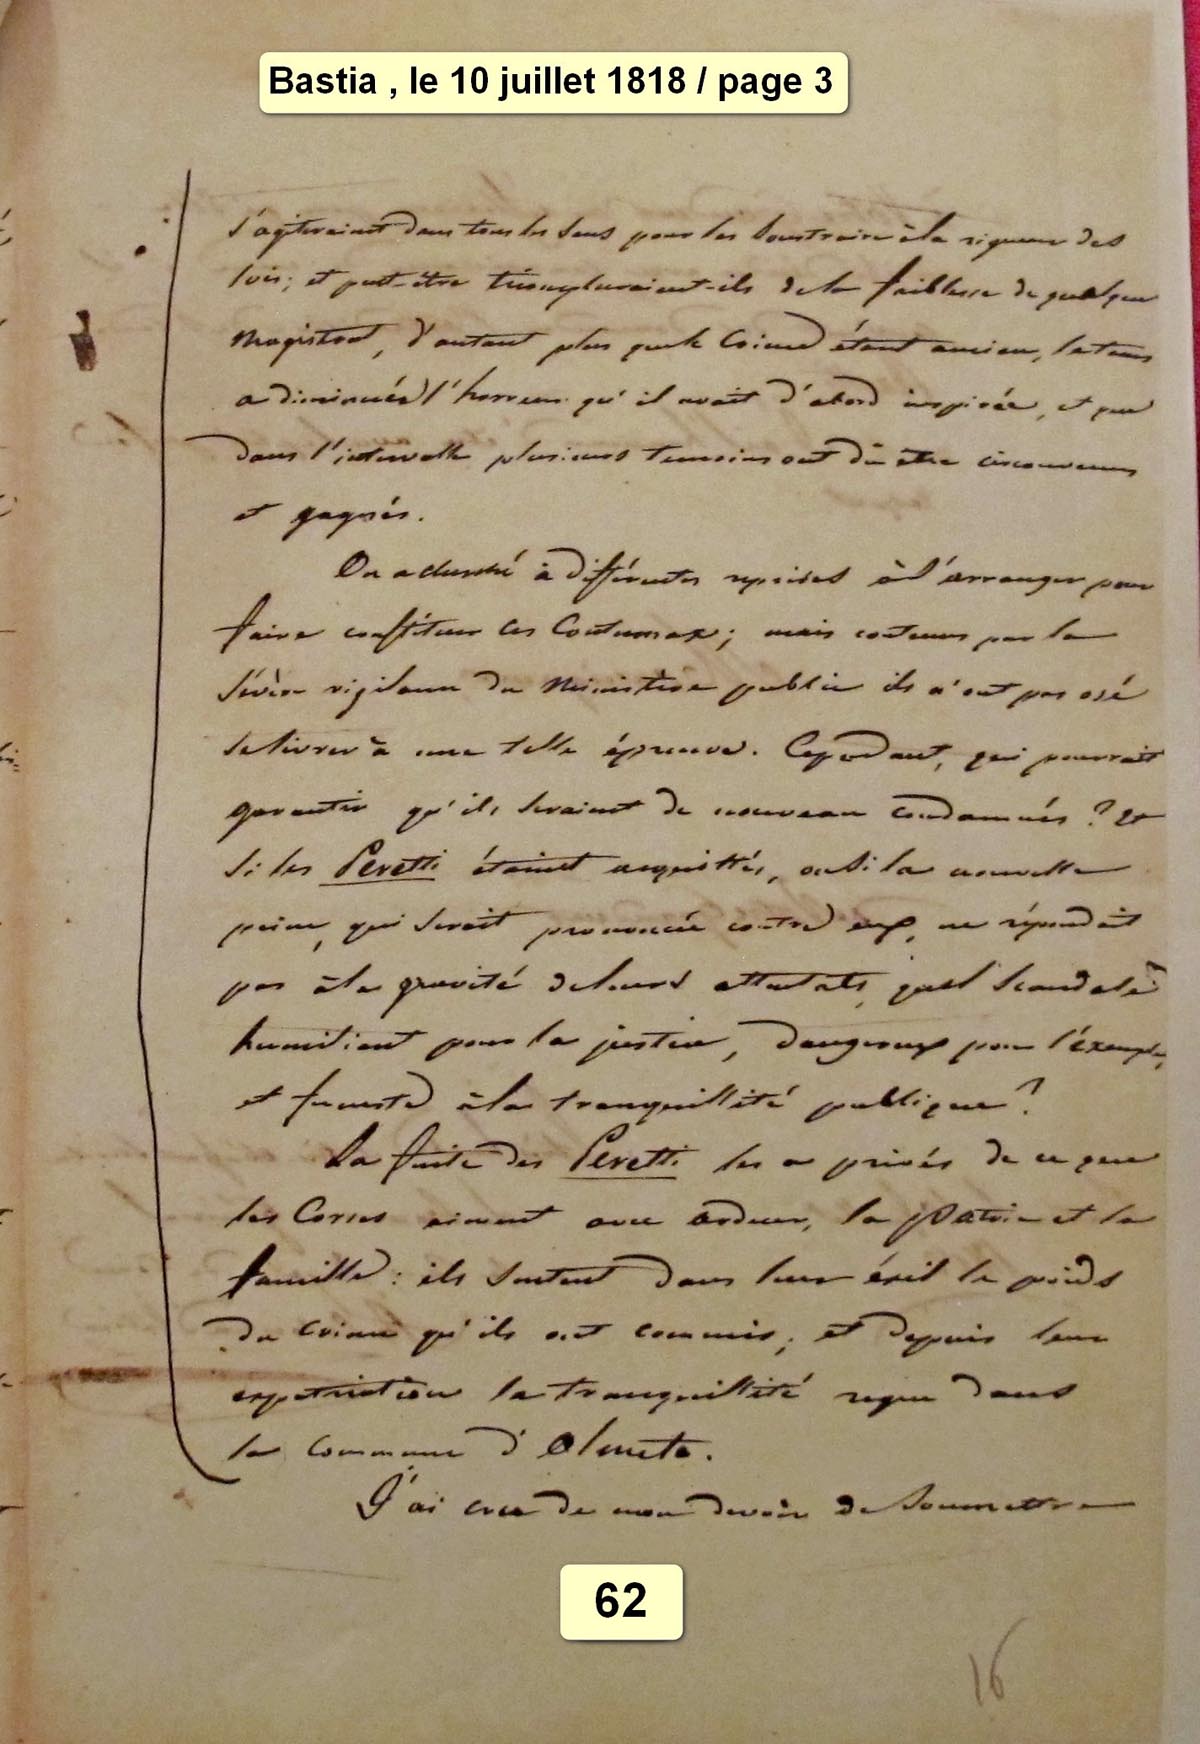 Bastia , le 10 juillet 1818 / page 3
s'agiteraient dans tous les sens pour les soustraire à la rigueur des
lois; et peut-être triompheraient-ils de la faiblesse de quelque
Magistrat, d'autant plus que le Crime étant ancien, le tems
a diminué l'horreur qu'il avait d'abord inspirée, et que
dans l'intervalle plusieurs temoins ont dû être circonvenus
et gagnés.
On a cherché à différentes reprises à l'arranger pour
faire constituer ces Contumax; mais contenus par la
sévère vigilance du Ministère public ils n'ont pas osé
se livrer à une telle épreuve. Cependant, qui pourrait
garantir qu'ils seraient de nouveau condamnés ? Et
si les Peretti étaient acquittés, ou si la nouvelle
peine, qui serait prononcée contre eux, ne répondait
pas à la gravité de leurs attentats, quel scandale
humiliant pour la justice, dangereux pour l'éxemple,
et funeste à la tranquillité publique ?
La fuite des Peretti les a privés de ce que
les Corses aiment avec ardeur, la Patrie et la
famille : ils sentent dans leur éxil le poids
du crime qu'ils ont commis; et depuis leur
expatriation la tranquillité regne dans
la commune d'Olmeto.
J'ai cru de mon devoir de soumettre
62
16